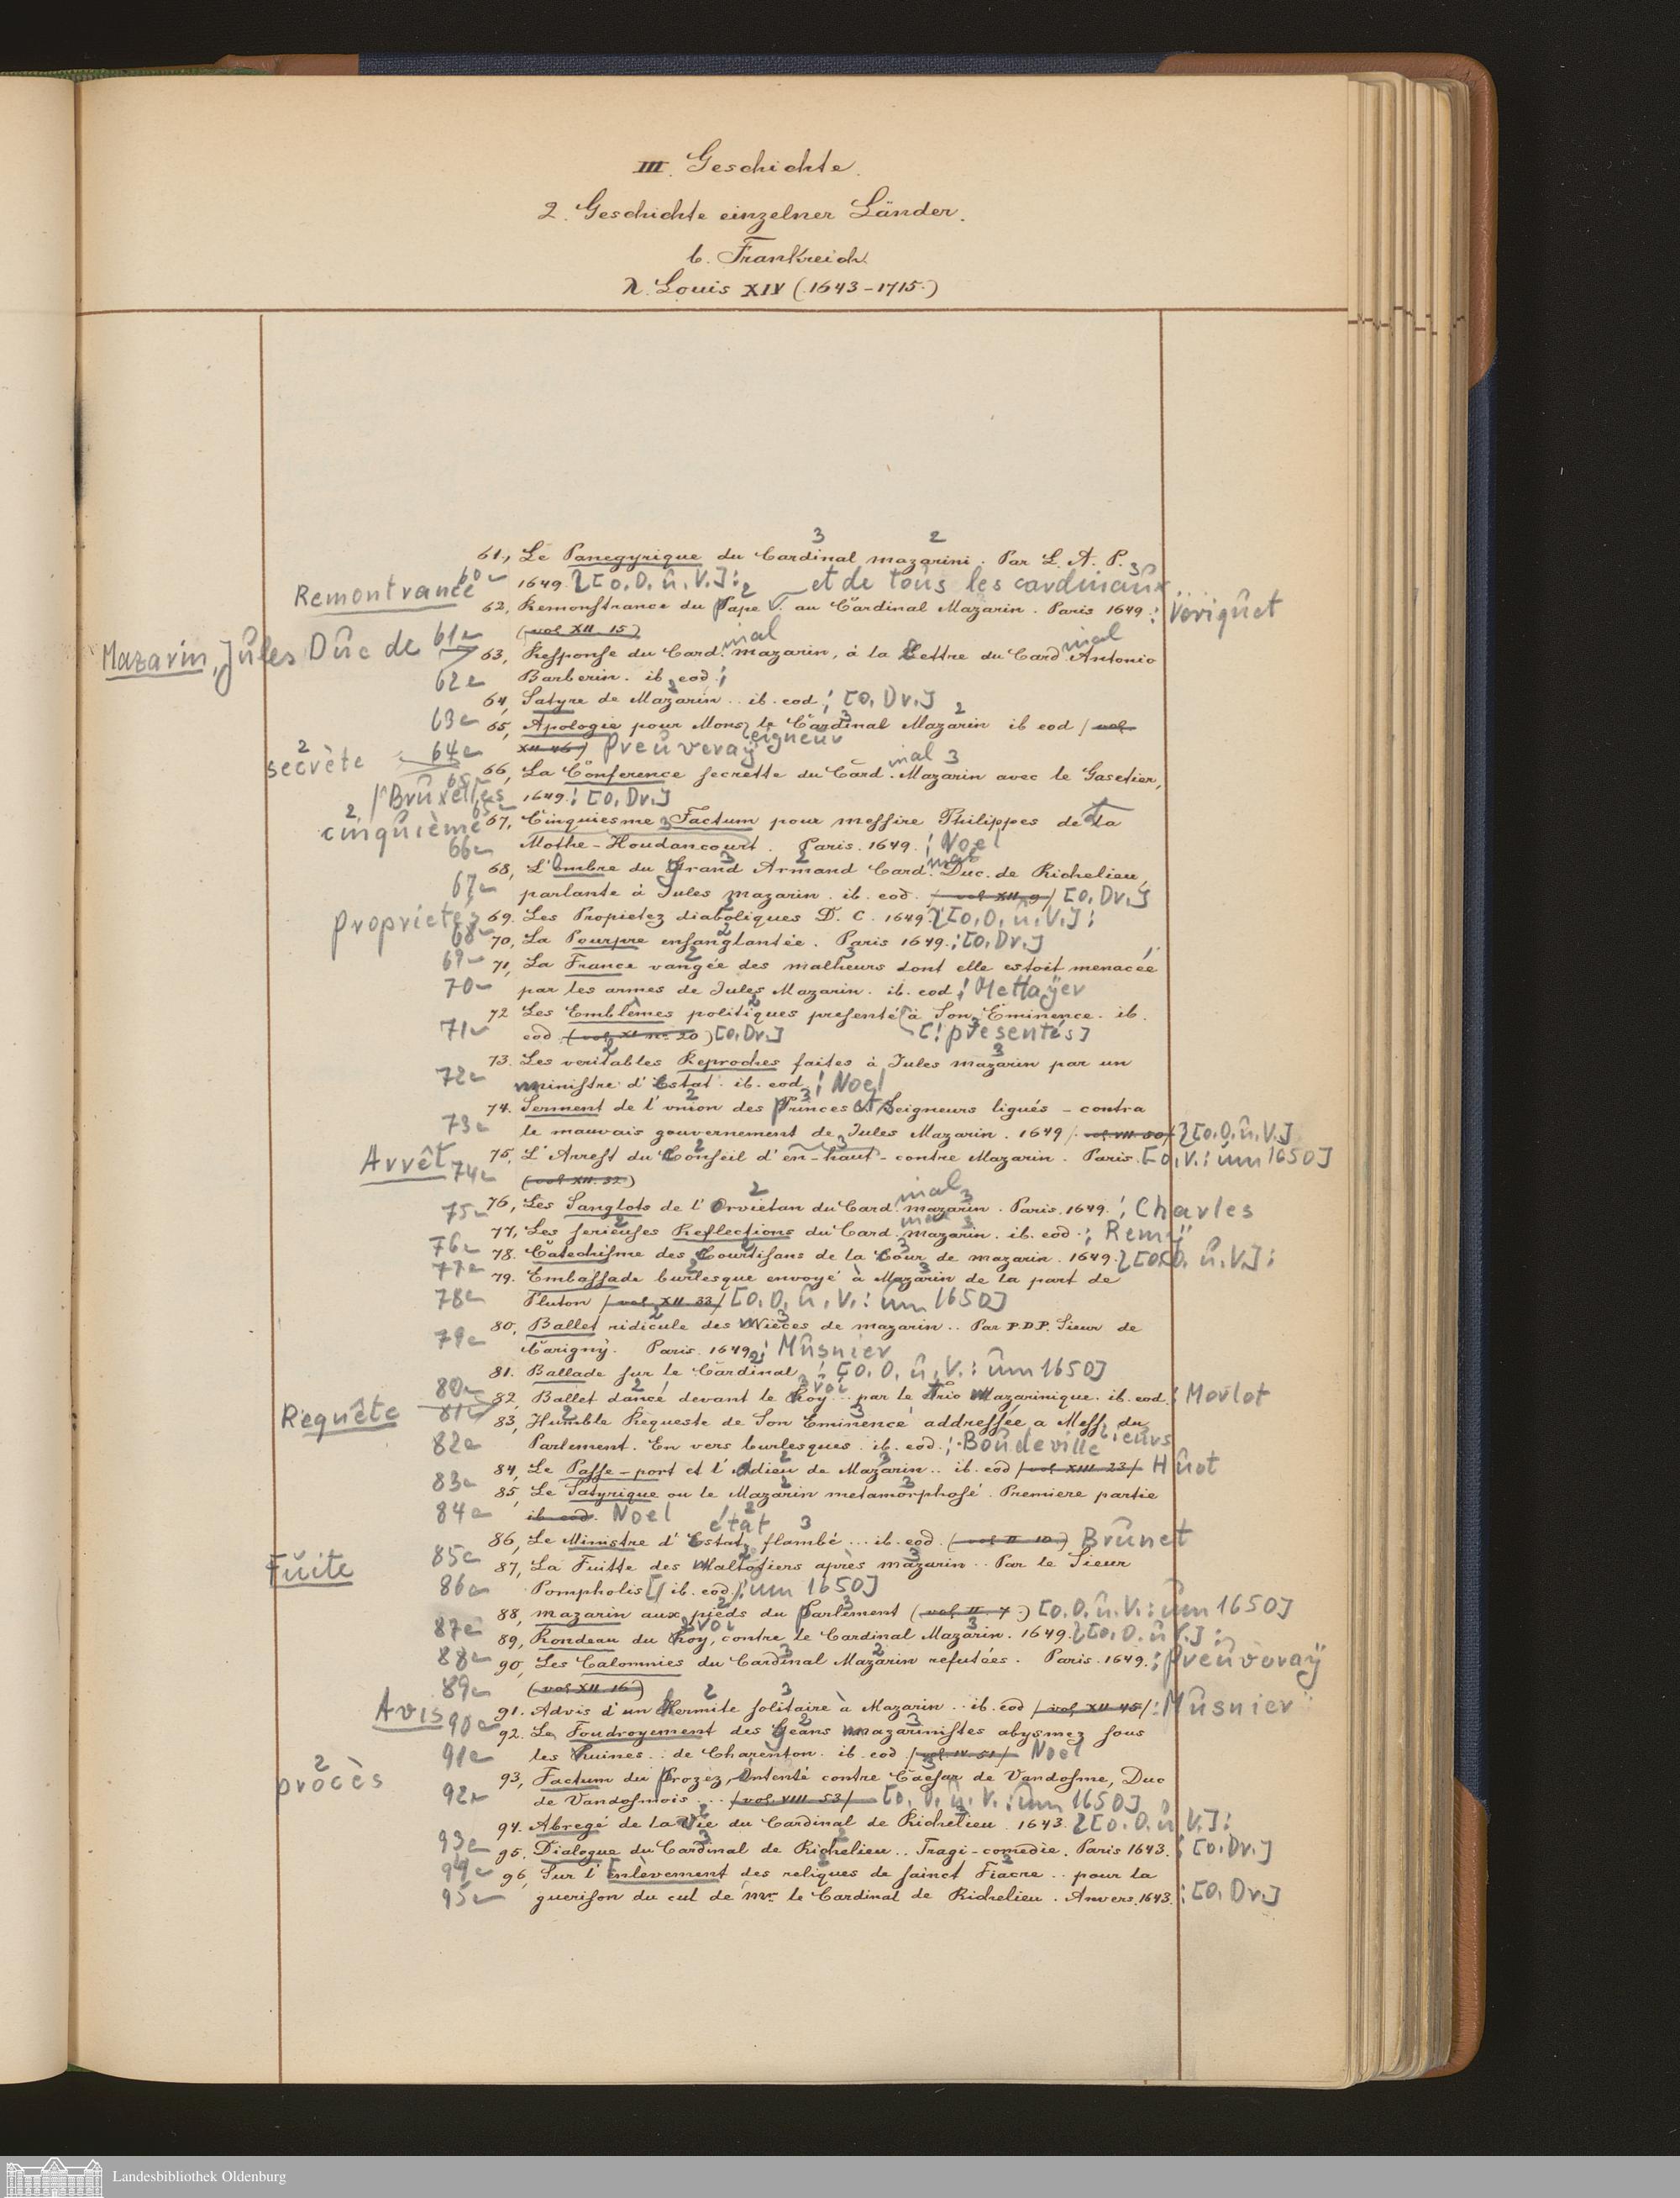 III. Geschichte.
2. Geschichte einzelner Länder.
b. Frankreich.
λ. Louis XIV (1643-1715.)
61., Le Panegyrique du Cardinal Mazarini. Par L. A. P.
1649. [O. O. û. V.]:
et de toûs les cardinaûx
Remontrance
62, Remonstrance du Pape V. au Cardinal Mazarin. Paris 1649.: Veriqûet
(vol XII. 15)
Mazarin, Jûles Dûc de
63, Response du Card.inal Mazarin, à la Lettre du Card.inal Antonio
Barberin. ib. eod.;
64, Satyre de Mazarin.. ib. eod.; [O. Dr.]
65, Apologie pour Monseigneûr le Cardinal Mazarin ib eod (vol
XII. 46) Preûveraÿ
secrète
66, La Conference secrette du Card.inal Mazarin avec le Gasetier,
Brûxelles 1649.: [O. Dr.]
cinqûième
67, Cinquiesme Factum pour messire Philippes de la
Mothe-Houdancourt. Paris. 1649.; Noel
68, L'Ombre du Grand Armand Card.inal Duc. de Richelieu,
parlante à Jules Mazarin. ib. eod. (vol XII, 9) [O. Dr.]
Proprietéz
69. Les Propietez diaboliques D. C. 1649. [O. O. û. V.]:
70, La Pourpre ensanglantée. Paris 1649.; [O. Dr.]
71, La France vangée des malheurs dont elle estoit menacée
par les armes de Jules Mazarin. ib. eod.; Mettaÿer
72 Les Emblêmes politiques presenté à Son Eminence. ib.
eod. (vol XI no. 20) [O. Dr.] [! presentés]
73. Les veritables Reproches faites à Jules Mazarin par un
ministre d'Estat. ib. eod.; Noel
74. Serment de l'union des Princes et Seigneurs ligués - contra
le mauvais gouvernement de Jules Mazarin. 1649 (vol VII 50) [O. O. û. V.]
Arrêt
75, L'Arrest du Conseil d'en-haut - contre Mazarin. Paris. [O. V.: ûm 1650]
(vol XII. 32)
76, Les Sanglots de l'Orvietan du Card.inal Mazarin. Paris. 1649.; Charles
77, Les serieuses Reflections du Card.inal Mazarin. ib. eod.; Remÿ
78. Catechisme des Courtisans de la Cour de Mazarin. 1649. [O. O. û. V.]:
79. Embassade burlesque envoyé à Mazarin de la part de
Pluton (vol XII. 33) [O. O. û. V.: ûm 1650]
80, Ballet ridicule des Nièces de Mazarin.. Par P.D.P. Sieur de
Carigny. Paris. 1649; Mûsnier
81. Ballade sur le Cardinal.; [O. O. û. V.: ûm 1650]
82, Ballet dancé devant le Roy roi.. par le Trio Mazarinique. ib. eod.: Morlot
Reqûête
83, Humble Requeste de Son Eminence addressée a Mess.ieûrs du
Parlement. En vers burlesques. ib. eod.; Boûdeville
84, Le Passe-port et l'Adieu de Mazarin.. ib. eod (vol XIII 23) Hûot
85, Le Satyrique ou le Mazarin metamorphosé. Premiere partie
ib eod. Noel
état
86, Le Ministre d'Estat flambé... ib. eod. (vol II 10) Brûnet
Fûite
87, La Fuitte des Maltotiers après Mazarin.. Par le Sieur
Pompholis [ib. eod.]: ûm 1650]
88, Mazarin aux pieds du Parlement (vol II. 7.) [O. O. û. V.: ûm 1650]
89, Rondeau du Roy roi, contre le Cardinal Mazarin. 1649. [O. O. û V.]:
90, Les Calomnies du Cardinal Mazarin refutées. Paris. 1649.; Preûveraÿ
(vol XII 16)
Avis
91. Advis d'un Hermite solitaire à Mazarin.. ib. eod (vol XII 45): Mûsnier
92. Le Foudroyement des Geans Mazarinistes abysmez sous
les Ruines.. de Charenton. ib. eod. (vol. IV. 51) Noel
procès
93, Factum du Prozez, intenté contre Caesar de Vandosme, Duc
de Vandosmois... (vol. VIII 53) [O. O. û. V.: ûm 1650]
94. Abregé de la Vie du Cardinal de Richelieu. 1643. [O. O. û V.]:
95. Dialogue du Cardinal de Richelieu.. Tragi-comedie. Paris 1643.; [O. Dr.]
96, Sur l'Enlèvement des reliques de sainct Fiacre.. pour la
guerison du cul de mr. le Cardinal de Richelieu. Anvers. 1643.; [O. Dr.]
Landesbibliothek Oldenburg